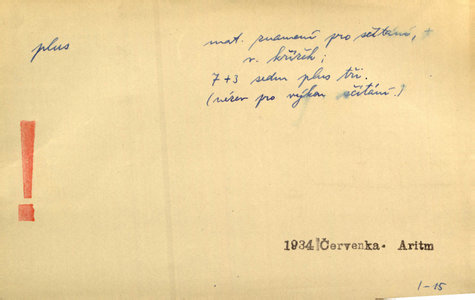 plus
mat. znamení pro sčítání, +
v. křížek;
7+3 sedm plus tři.
(název pro výkon sčítání.)
!
1934 Červenka. Aritm
1-15